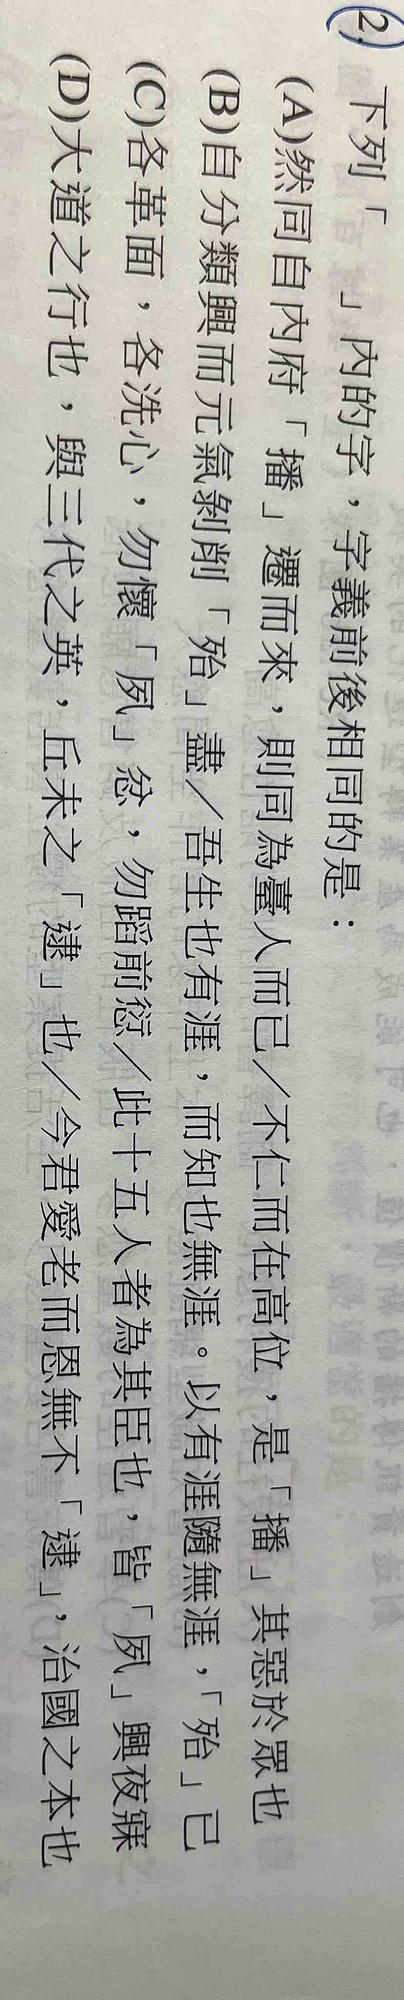 2. 下列「　　」內的字，字義前後相同的是：
(A)然同自內府「播」遷而來，則同為臺人而已／不仁而在高位，是「播」其惡於眾也
(B)自分類興而元氣剝削「殆」盡／吾生也有涯，而知也無涯。以有涯隨無涯，「殆」已
(C)各革面，各洗心，勿懷「夙」忿，勿蹈前愆／此十五人者為其臣也，皆「夙」興夜寐
(D)大道之行也，與三代之英，丘未之「逮」也／今君愛老而恩無不「逮」，治國之本也